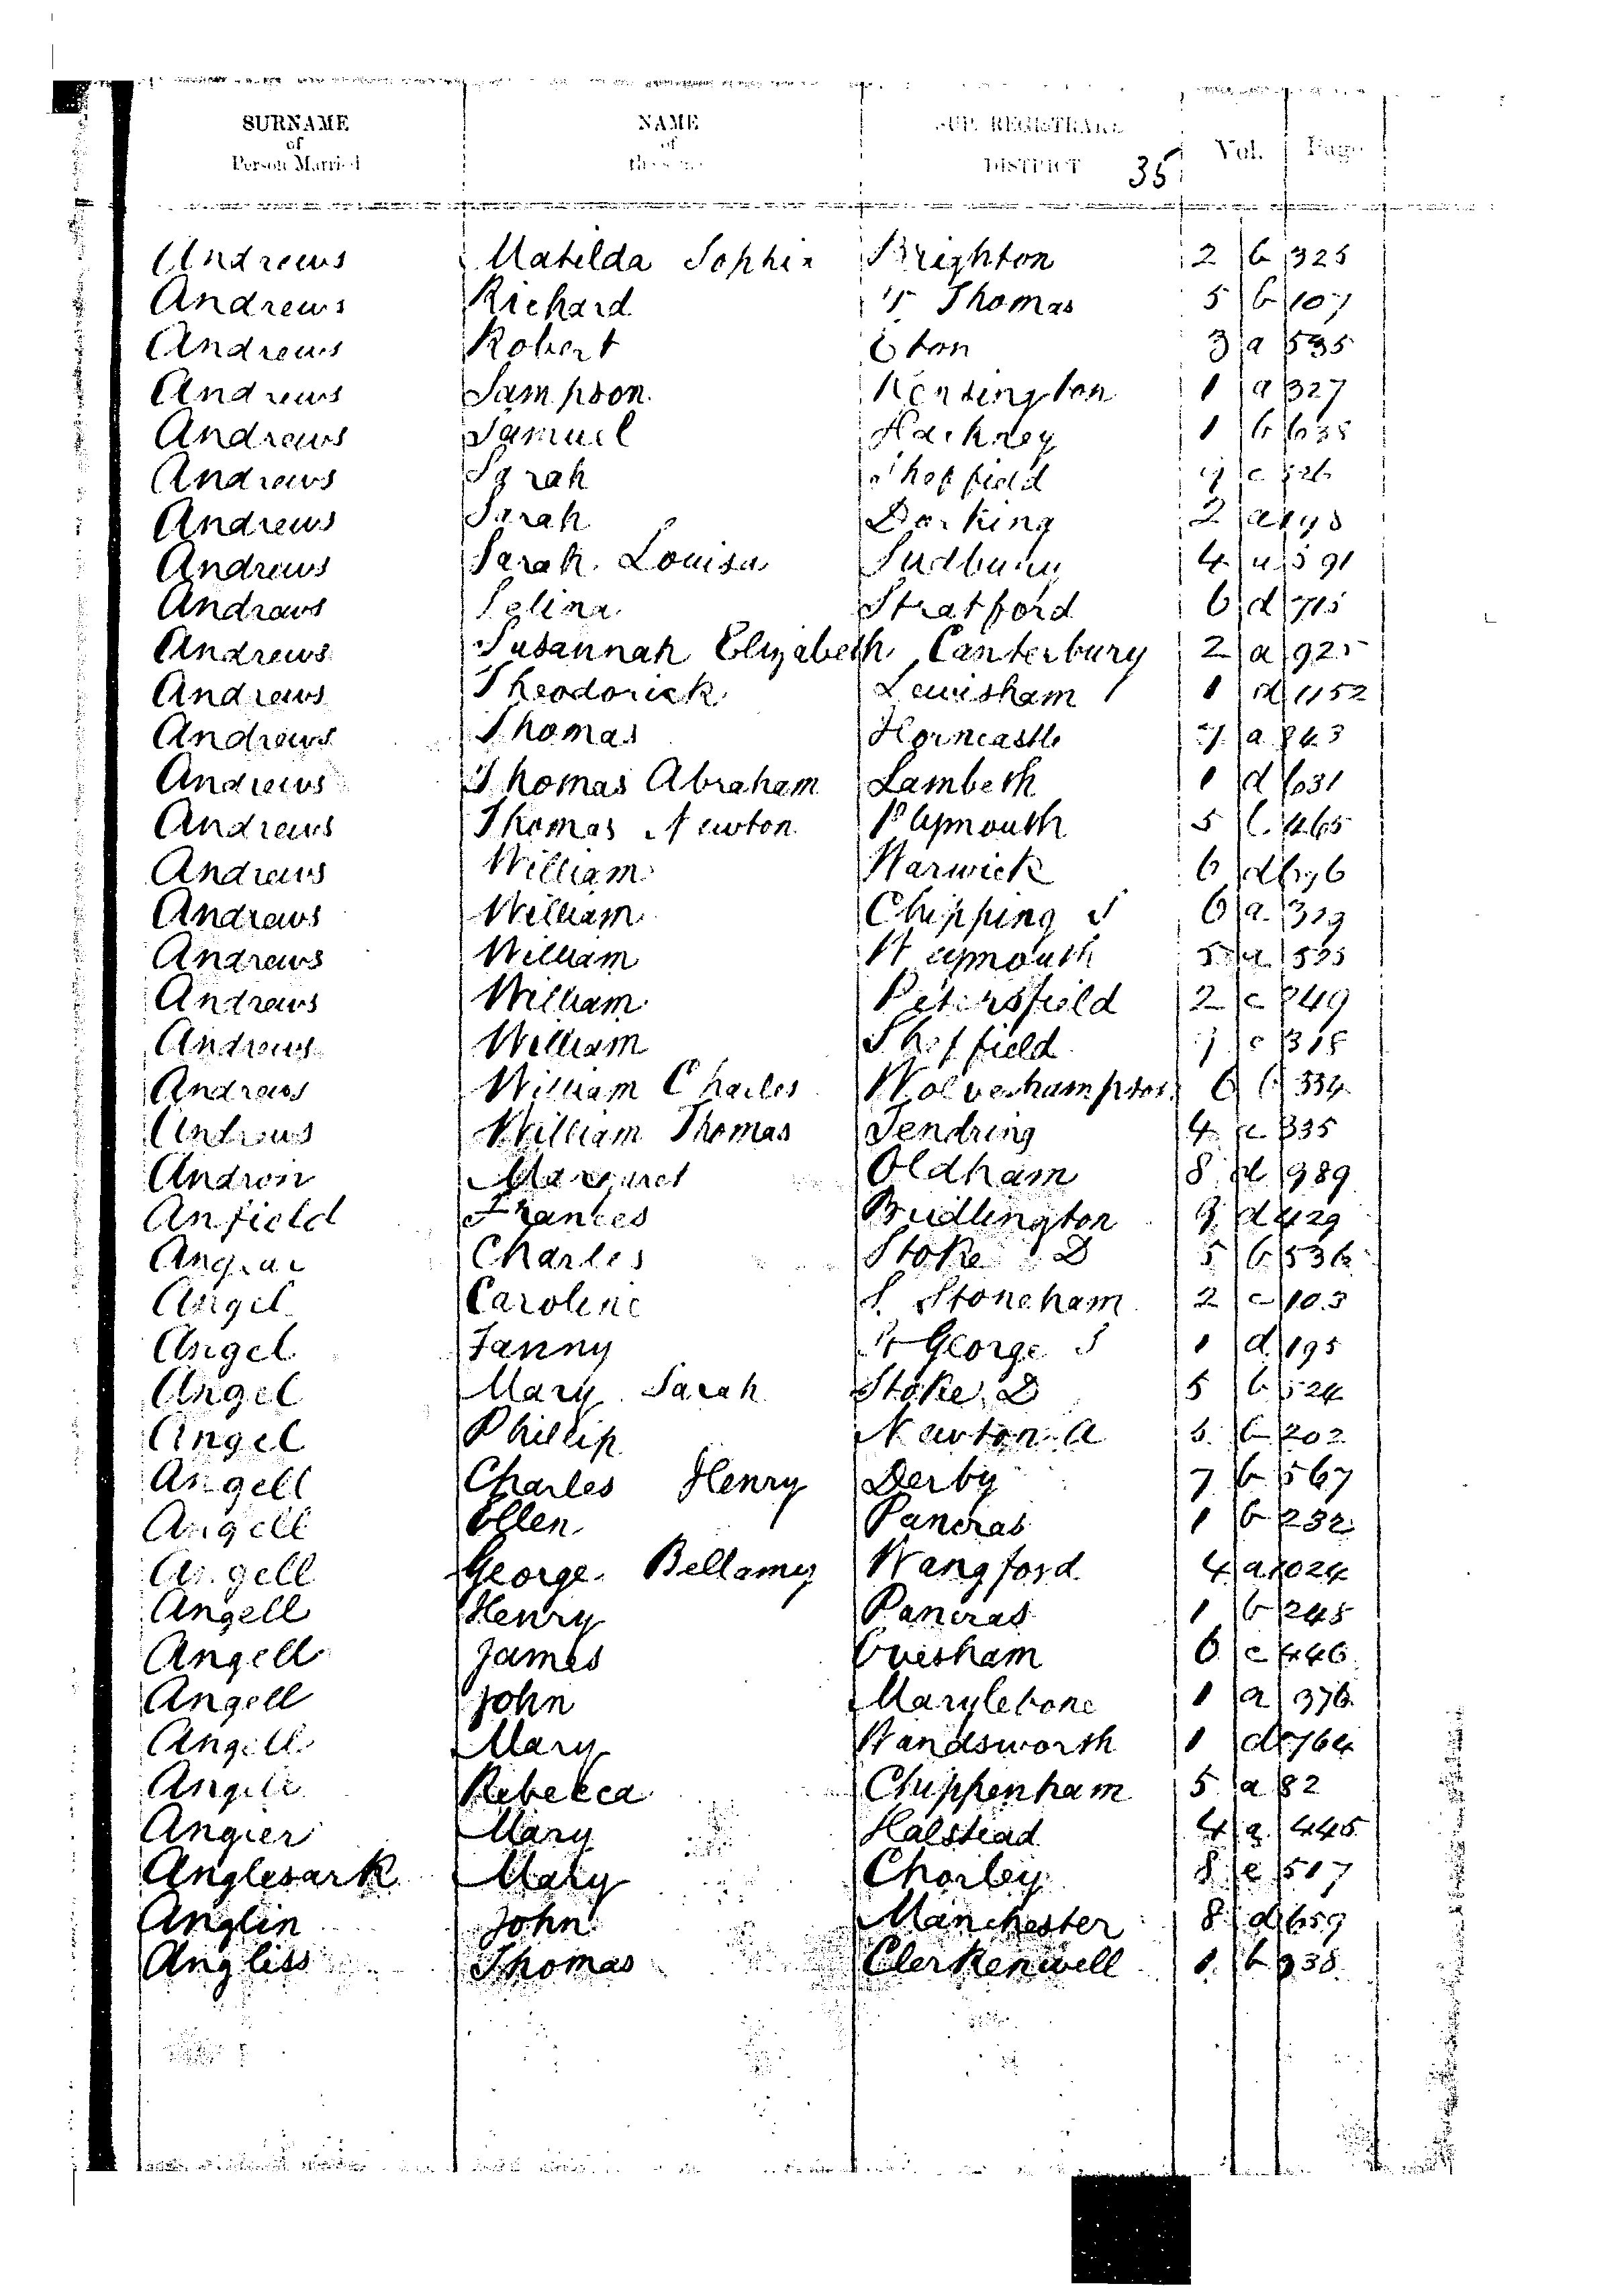 SURNAME NAME SUP. REGISTRAR'S
of of Vol. Page
Person Married the same DISTRICT 35
Andrews Matilda Sophia Brighton 2 b 325
Andrews Richard St Thomas 5 b 107
Andrews Robert Eton 3 a 535
Andrews Sampson Kensington 1 a 327
Andrews Samuel Hackney 1 b 638
Andrews Sarah Sheffield c
Andrews Sarah Dorking 2 a 198
Andrews Sarah Louisa Sudbury 4 a 591
Andrews Selina Stratford 6 d 715
Andrews Susannah Elizabeth Canterbury 2 a 925
Andrews Theodorick Lewisham 1 d 1152
Andrews Thomas Horncastle 7 a 843
Andrews Thomas Abraham Lambeth 1 d 631
Andrews Thomas Newton Plymouth 5 b 465
Andrews William Warwick 6 d
Andrews William Chipping S 6 a 319
Andrews William Weymouth 5 a 535
Andrews William Petersfield 2 c 249
Andrews William Sheffield c 318
Andrews William Charles Wolverhampton 6 b 334
Andrews William Thomas Tendring 4 a 335
Andron Margaret Oldham 8 d 989
Anfield Frances Bridlington 9 d 429
Charles Stoke D 5 b 536
Angel Caroline S. Stoneham 2 c 103
Angel Fanny St George S 1 d 195
Angel Mary Sarah Stoke D 5 b 524
Angel Phillip Newton A 5 b 202
Angell Charles Henry Derby 7 b 567
Angell Ellen Pancras 1 b 232
Angell George Bellamy Wangford 4 a 1024
Angell Henry Pancras 1 b 245
Angell James Evesham 6 c 446
Angell John Marylebone 1 a 376
Angell Mary Wandsworth 1 d 764
Angell Rebecca Chippenham 5 a 82
Angier Mary Halstead 4 a 445
Anglesark Mary Chorley 8 e 517
Anglin John Manchester 8 d 659
Angliss Thomas Clerkenwell 1 b 938